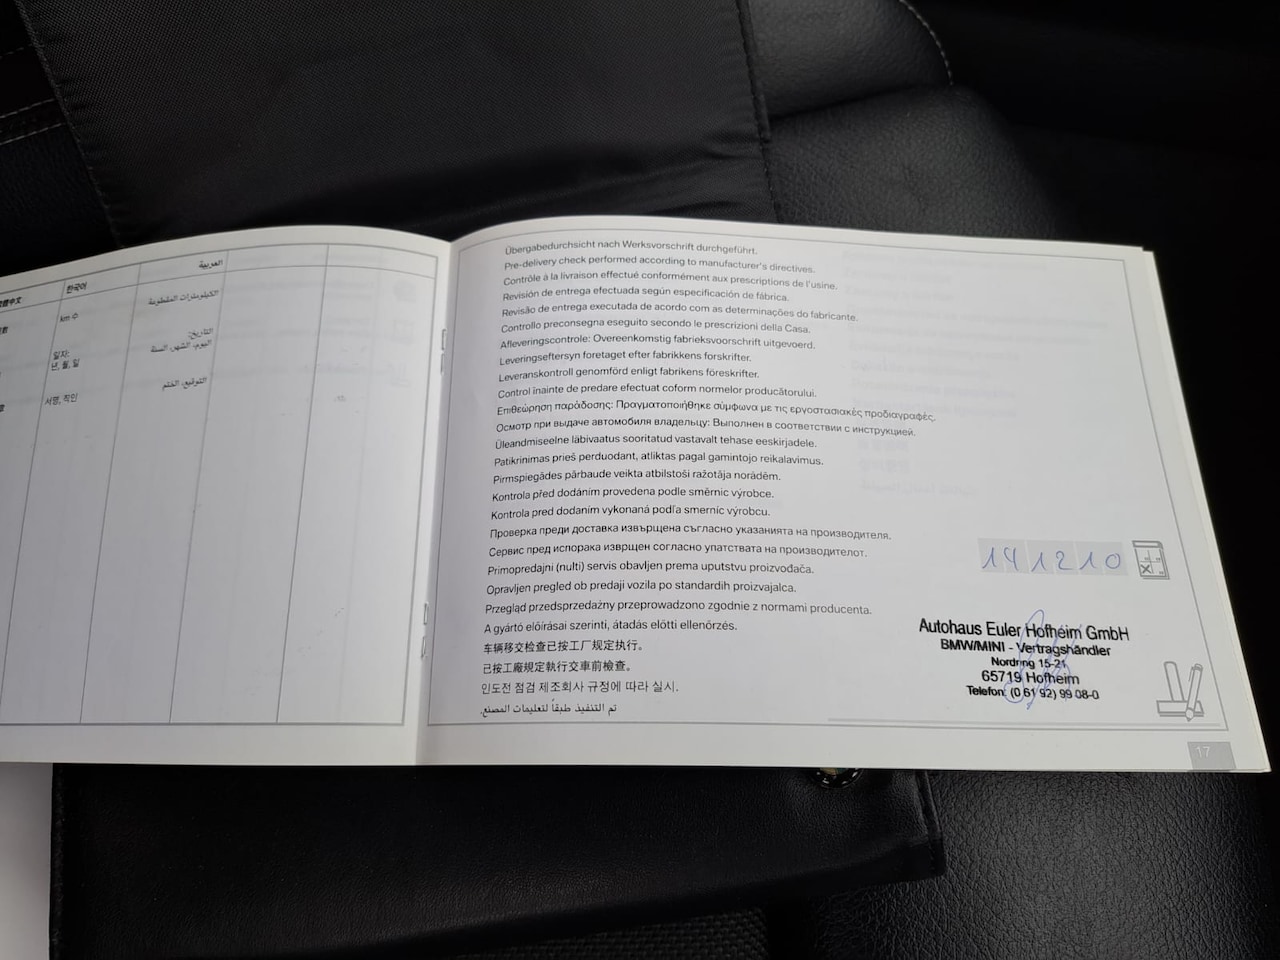 한국어
العربية
km
الكيلومترات المقطوعة
일자:
년, 월, 일
التاريخ:
اليوم، الشهر، السنة
서명, 직인
التوقيع، الختم
Übergabedurchsicht nach Werksvorschrift durchgeführt.
Pre-delivery check performed according to manufacturer's directives.
Contrôle à la livraison effectué conformément aux prescriptions de l'usine.
Revisión de entrega efectuada según especificación de fábrica.
Revisão de entrega executada de acordo com as determinações do fabricante.
Controllo preconsegna eseguito secondo le prescrizioni della Casa.
Afleveringscontrole: Overeenkomstig fabrieksvoorschrift uitgevoerd.
Leveringseftersyn foretaget efter fabrikkens forskrifter.
Leveranskontroll genomförd enligt fabrikens föreskrifter.
Control înainte de predare efectuat coform normelor producătorului.
Επιθεώρηση παράδοσης: Πραγματοποιήθηκε σύμφωνα με τις εργοστασιακές προδιαγραφές.
Осмотр при выдаче автомобиля владельцу: Выполнен в соответствии с инструкцией.
Üleandmiseelne läbivaatus sooritatud vastavalt tehase eeskirjadele.
Patikrinimas prieš perduodant, atliktas pagal gamintojo reikalavimus.
Pirmspiegādes pārbaude veikta atbilstoši ražotāja norādēm.
Kontrola před dodáním provedena podle směrnic výrobce.
Kontrola pred dodaním vykonaná podľa smerníc výrobcu.
Проверка преди доставка извърщена съгласно указанията на производителя.
Сервис пред испорака изврщен согласно упатствата на производителот.
Primopredajni (nulti) servis obavljen prema uputstvu proizvođača.
Opravljen pregled ob predaji vozila po standardih proizvajalca.
Przegląd przedsprzedażny przeprowadzono zgodnie z normami producenta.
A gyártó előírásai szerinti, átadás előtti ellenőrzés.
车辆移交检查已按工厂规定执行。
已按工廠規定執行交車前檢查。
인도전 점검 제조회사 규정에 따라 실시.
تم التنفيذ طبقاً لتعليمات المصنع.
141210
Autohaus Euler Hofheim GmbH
BMW/MINI - Vertragshändler
Nordring 15-21
65719 Hofheim
Telefon: (0 61 92) 99 08-0
17